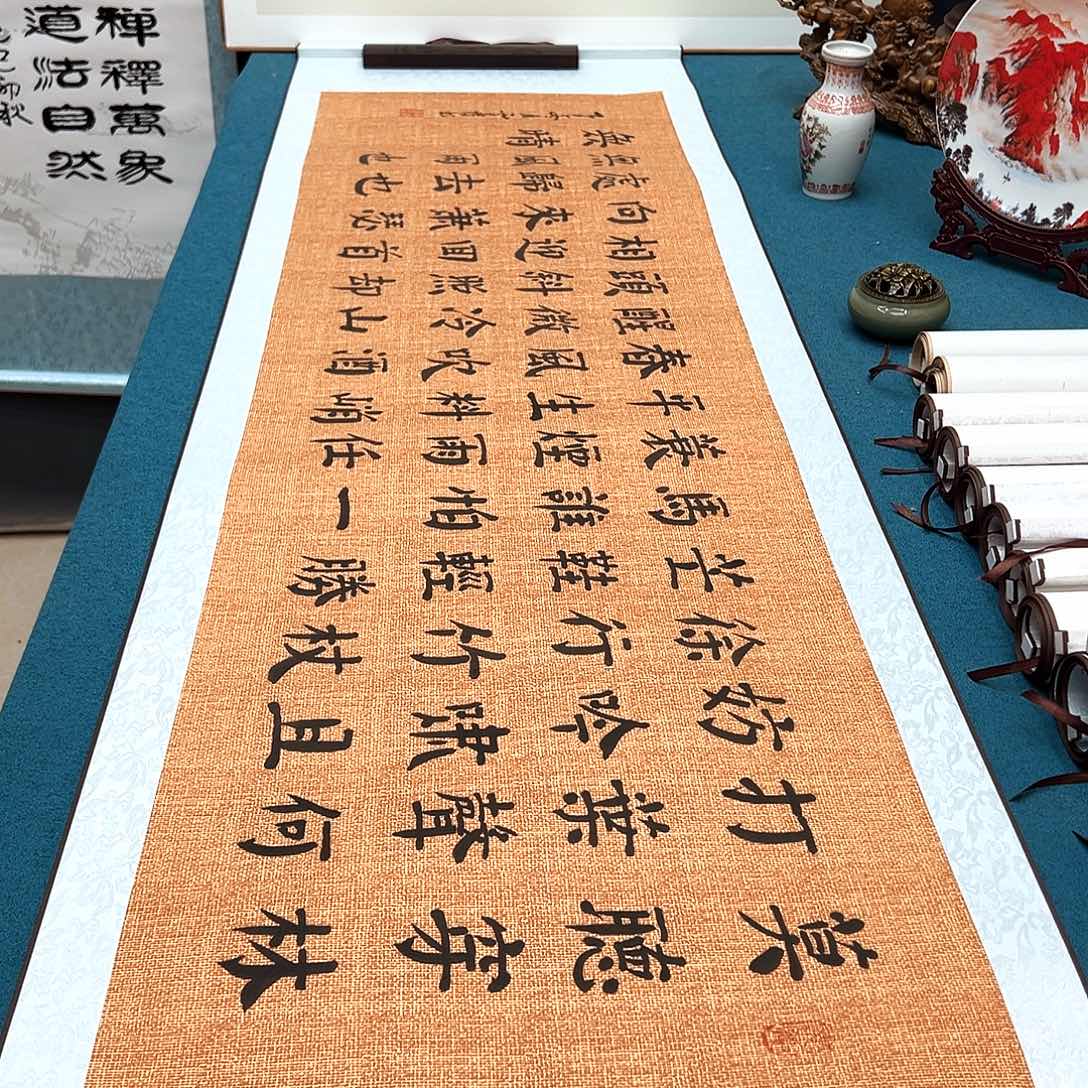 禪釋萬象
道法自然
己卯秋
莫聽穿林
打葉聲何
妨吟嘯且
徐行竹杖
芒鞋輕勝
馬誰怕一
蓑煙雨任
平生料峭
春風吹酒
醒微冷山
頭斜照却
相迎回首
向來蕭瑟
處歸去也
無風雨也
無晴